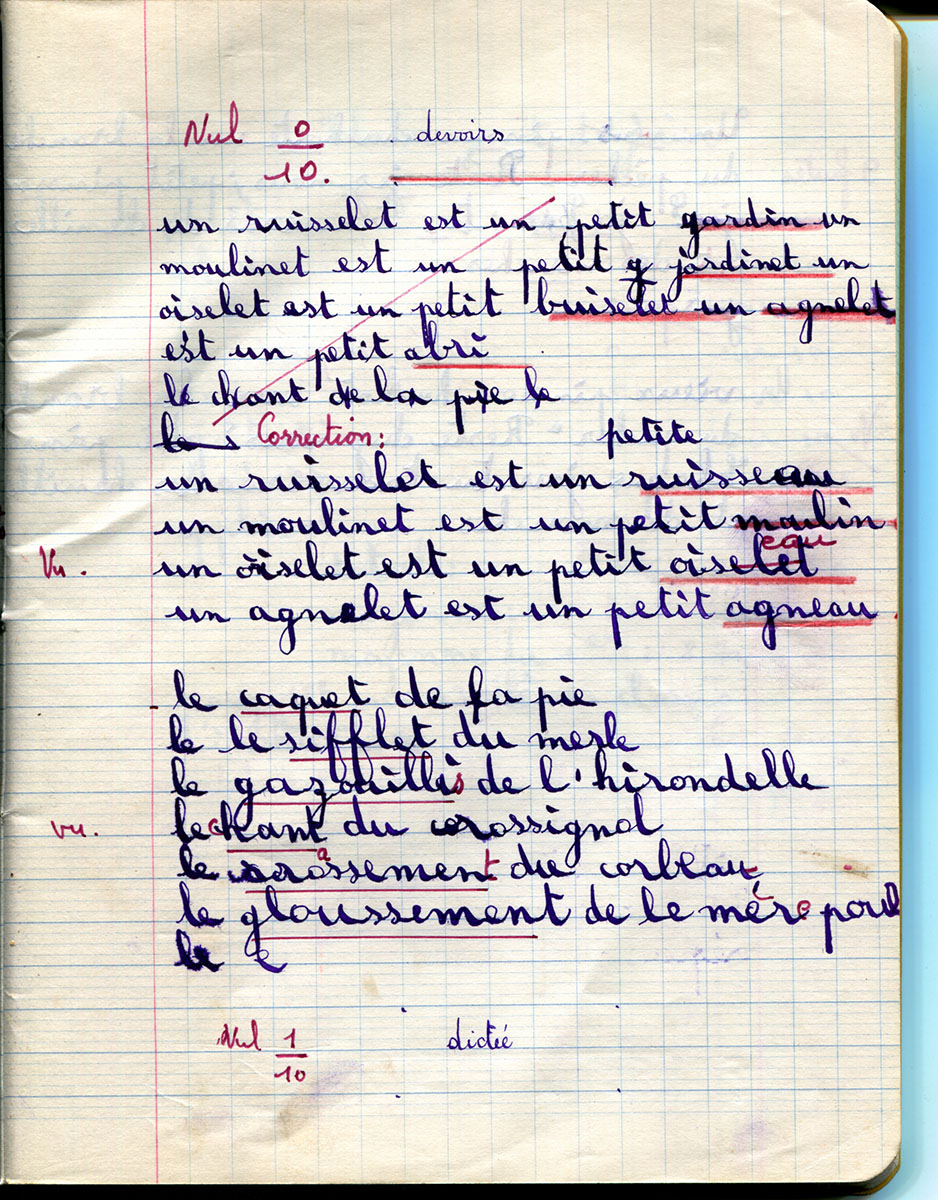 Nul 0/10. devoirs
un ruisselet est un petit gardin un
moulinet est un petit g jardinet un
oiselet est un petit buiselet un agnelet
est un petit abri
le chant de la pie le
le Correction: petite
un ruisselet est un ruisseau
un moulinet est un petit moulin
eau
Vu. un oiselet est un petit oiselet
un agnelet est un petit agneau
le caquet de la pie
le le sifflet du merle
le gazouillis de l'hirondelle
vu. le chant du rossignol
le croassement du corbeau
le gloussement de le mère poul
le c
Nul 1/10 dictée